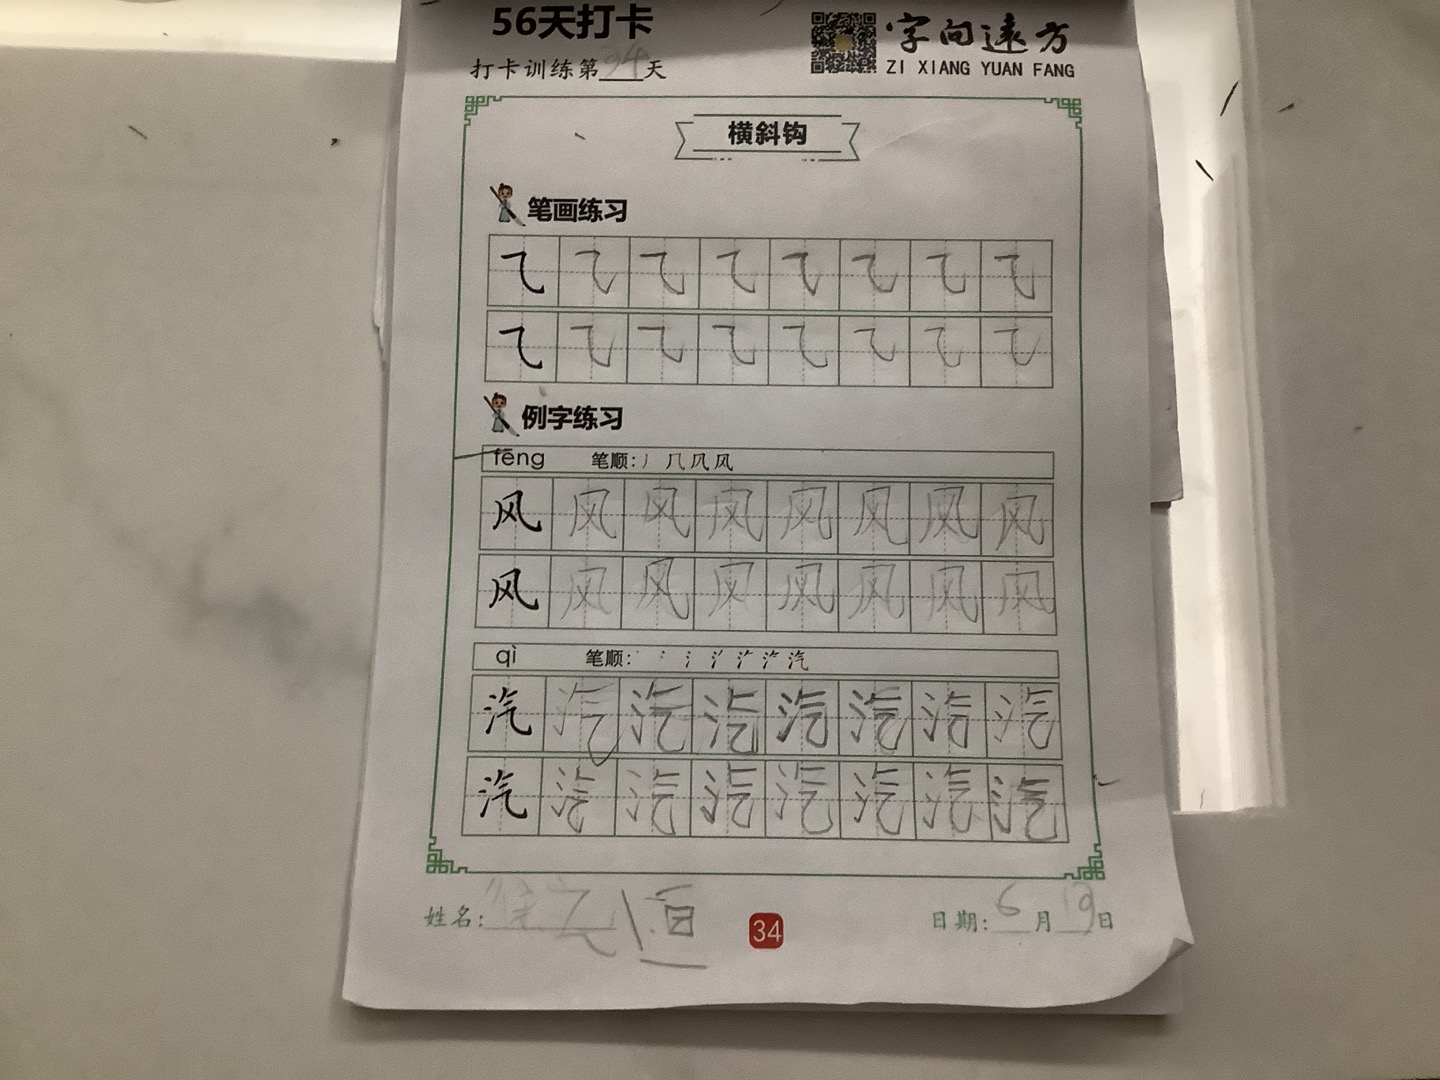 56天打卡
字向远方
打卡训练第34天
ZI XIANG YUAN FANG
横斜钩
笔画练习
⺄ ⺄ ⺄ ⺄ ⺄ ⺄ ⺄ ⺄
⺄ ⺄ ⺄ ⺄ ⺄ ⺄ ⺄ ⺄
例字练习
fēng 笔顺: 丿 几 风 风
风 风 风 风 风 风 风 风
风 风 风 风 风 风 风 风
qì 笔顺:
汽 汽 汽 汽 汽 汽 汽 汽
汽 汽 汽 汽 汽 汽 汽 汽
姓名:
34
日期: 6月19日